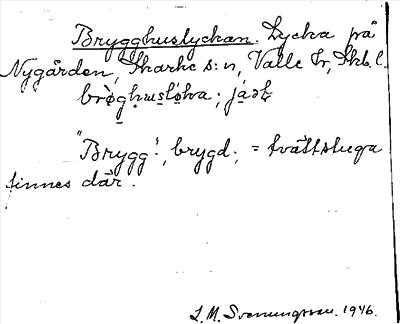 Brygghuslyckan. Lycka på
Nygården, Skarke s:n, Valle hr, Skb. l.
"Brygg", brygd; = tvättstuga
finnes där.
L. M. Svenungsson. 1946.